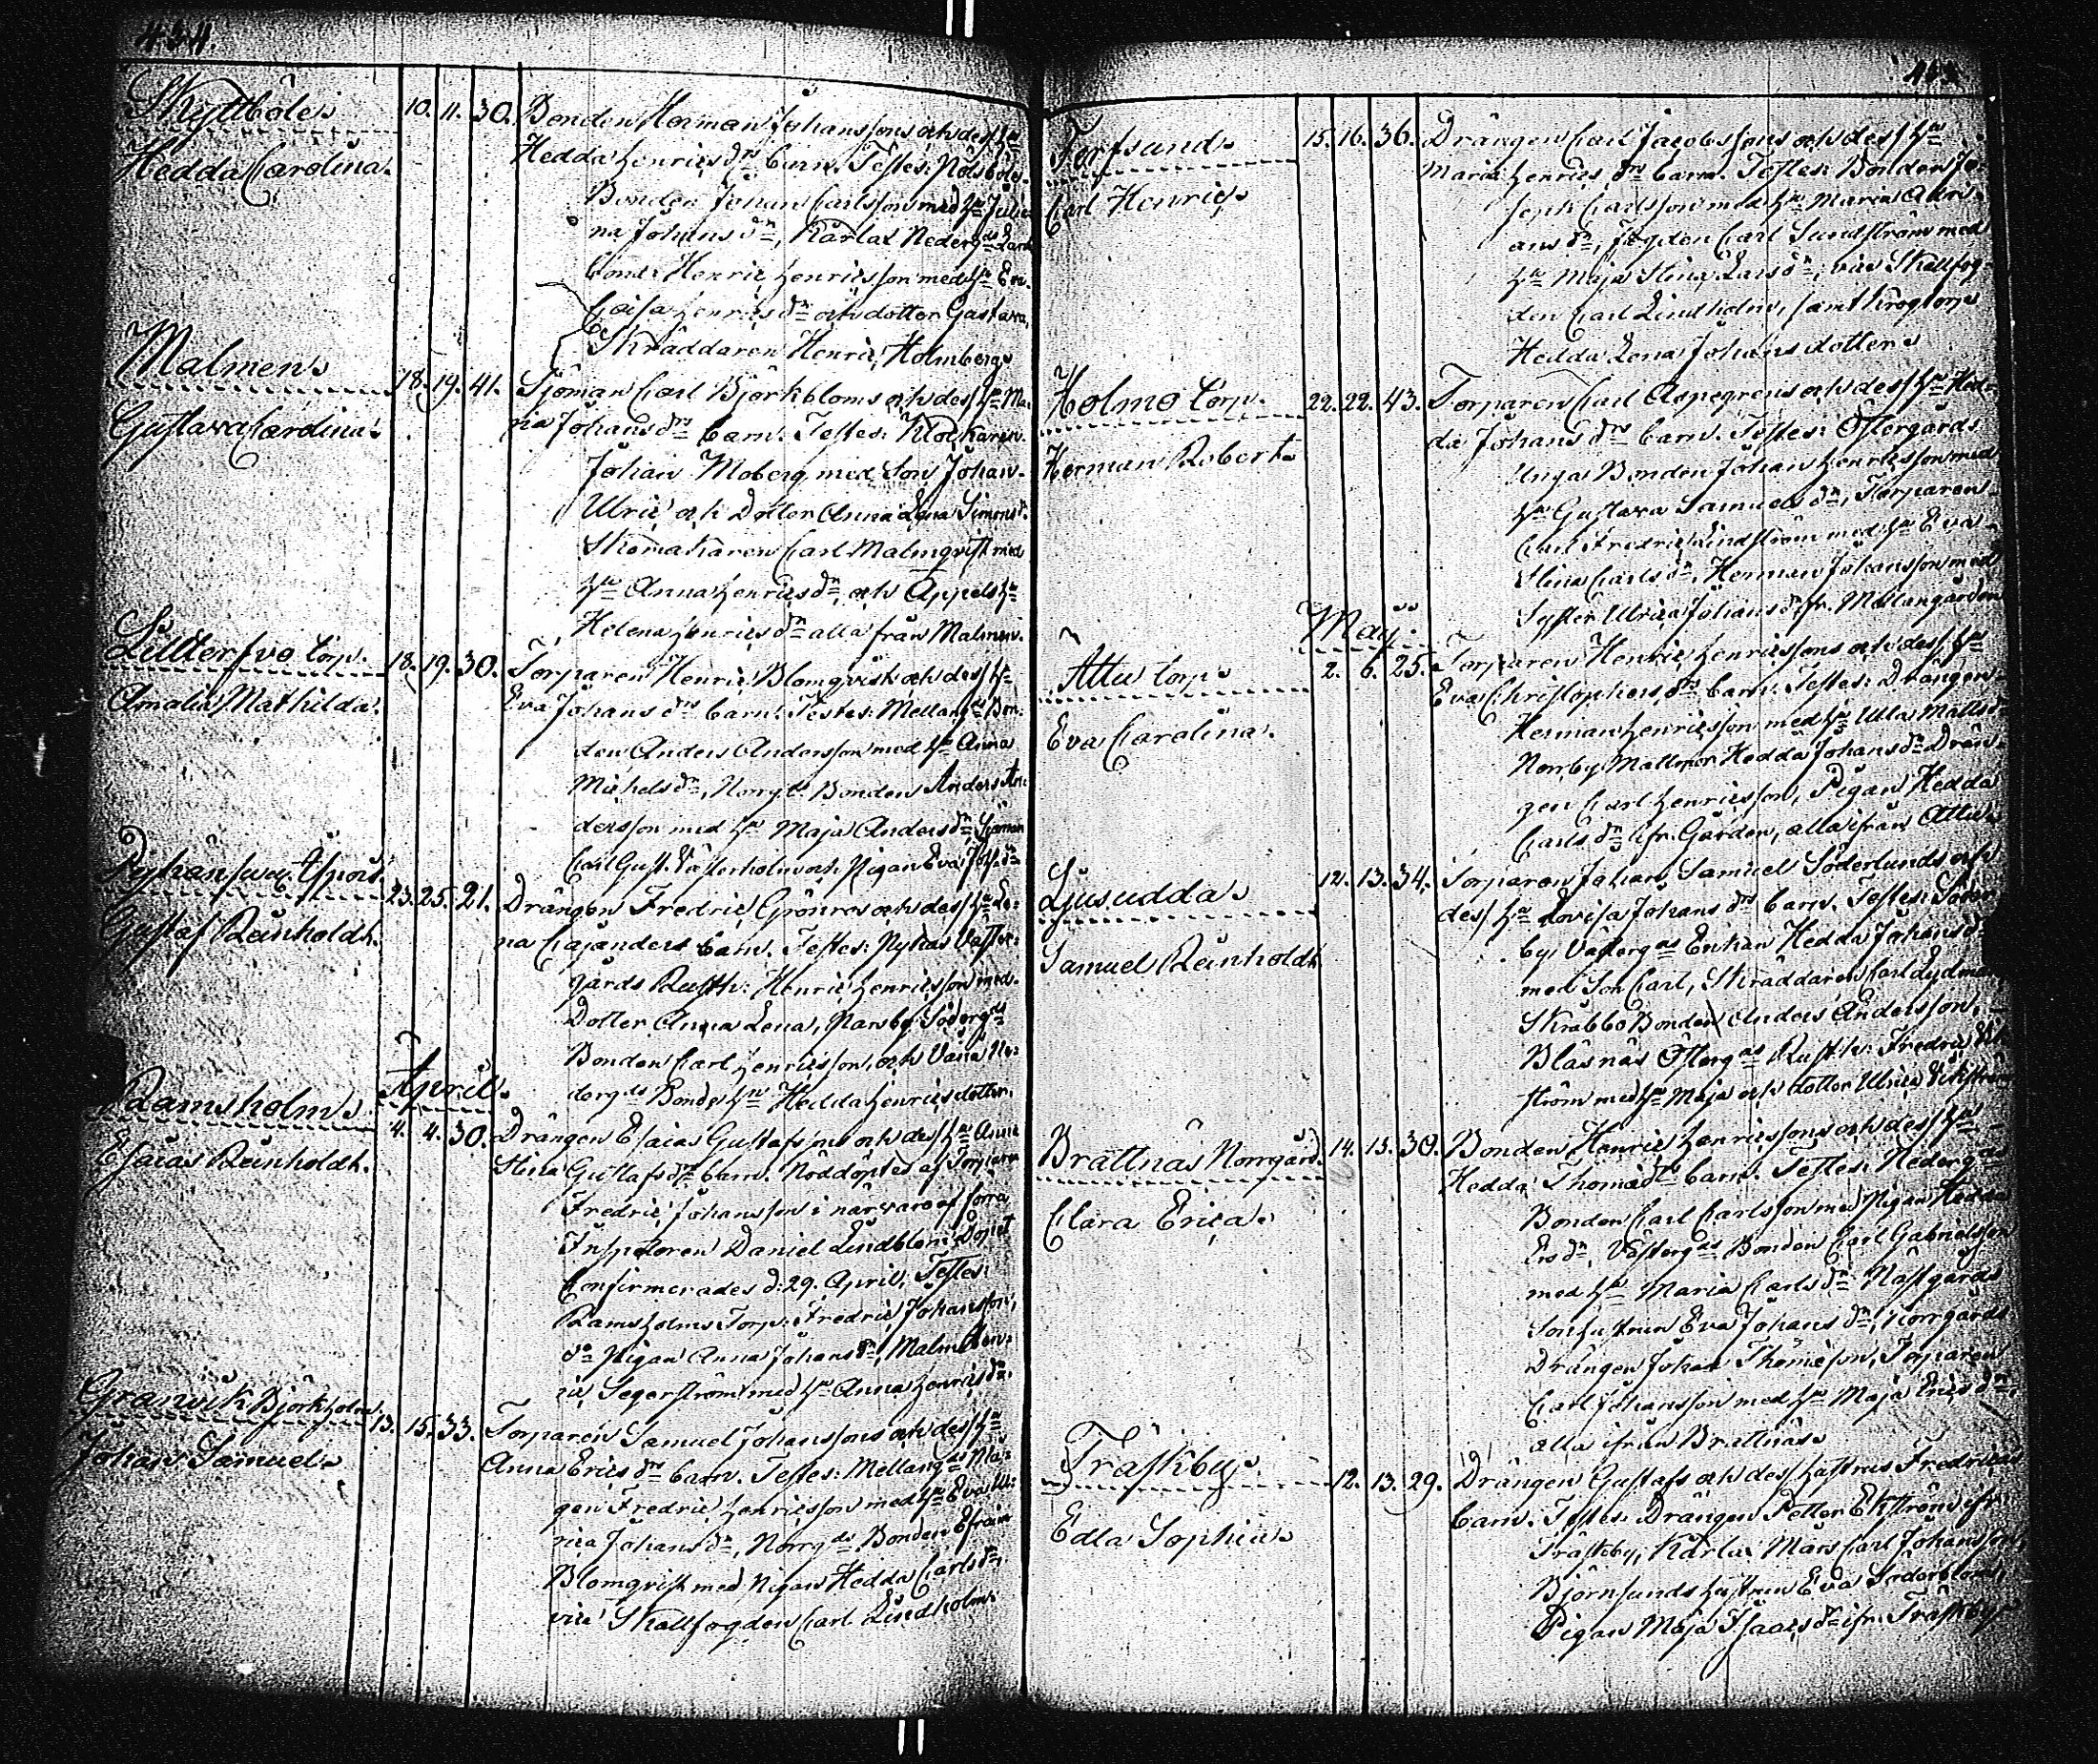 434.
Skyttböle. 10. 11. 30. Bonden Herman Johanssons och dess hu
Hedda Carolina. Hedda Henricsdrs barn. Testes: Nölsböle
Bonden Johan Carlsson med hu Julia-
na Johansdr, Kärlax Nedergds
Bond: Henric Henricsson med hu Eva
Caisa Henricsdr och dotter Gustava,
Skräddaren Henric Holmberg.
Malmen. 18. 19. 41. Sjöman Carl Björkbloms och dess hu Ma-
Gustava Carolina. ria Johansdrs barn. Testes: Klockaren
Johan Moberg med Son Johan
Ulric och Dotter Anna Lena Simonsdr.
Skomakaren Carl Malmqvist med
hu Anna Henricsdr, och Appels hu
Helena Henricsdr alla från Malmen.
torp. 18. 19. 30. Torparen Henric Blomqvist och dess hu
Amalia Mathilda. Eva Johansdrs barn. Testes: Mellangds Bon-
den Anders Andersson med hu Anna
Michelsdr, Norrgds Bonden Anders An-
dersson med hu Maja Andersdr, Sjöman
Carl Gust. Västerholm och Pigan Eva Joh.dr
23. 25. 21. Drängen Fredric Grönros och dess hu Le-
Gustaf Reinholdt. na Cajanders barn. Testes: Pyhäs Väster-
gårds Rusth: Henric Henricsson med
Dotter Anna Lena, Södergds
Bonden Carl Henricsson, och Ne-
dergds Bonde hu Hedda Henricsdotter.
April.
Ramsholm. 4. 4. 30. Drängen Esaias Gustafssons och dess hu Anna
Esaias Reinholdt. Stina Gustafsdrs barn. Nöddöptes af Torparen
Fredric Johansson i närvaro af förra
Inspectoren Daniel Lindblom. Dopet
Confirmerades d. 29. April. Testes:
Ramsholms Torp: Fredric Johansson,
do Pigan Anna Johansdr, Malm Hen-
ric Segerström med hu Anna Henricsdr.
Granvik Björkholm 13. 15. 33. Torparen Samuel Johanssons och dess hu
Johan Samuel. Anna Ericsdrs barn. Testes: Mellangds Må-
gen Fredric Henricsson med hu Eva Ul-
rica Johansdr, Norrgds Bonden Efraim
Blomqvist med Pigan Hedda Carlsdr,
vice Skallfogden Carl Lindholm.
Torfsund. 15. 16. 36. Drängen Carl Jacobssons och dess hu
Carl Henric. Maria Henricsdrs barn. Testes: Bonden Jo-
seph Carlsson med hu Maria Adri-
ansdr, Fogden Carl Sundström med
hu Maja Stina Larsdr, vice Skallfog-
den Carl Lindholm, samt
Hedda Lena Johansdotter.
Holmo torp. 22. 22. 43. Torparen Carl Aspegrens och dess hu Hed-
Herman Robert. da Johansdrs barn. Testes: Östergårds
Unga Bonden Johan Henricsson med
hu Gustava Samuelsdr, Torparen
Carl Fredric Lindström med hu Eva
Stina Carlsdr, Herman Johansson med
Syster Ulrica Johansdr fr. Mellangården
Maj.
Attu torp. 2. 6. 25. Torparen Henric Henricssons och dess hu
Eva Carolina. Eva Christophersdrs barn. Testes: Drängen
Herman Henricsson med hu Ulla Mattsdr
Norrby Hedda Johansdr Drän-
gen Carl Henricsson, Pigan Hedda
Carlsdr ifr. Gården, alla ifrån Attu.
Ljusudda. 12. 13. 34. Torparen Johan Samuel Söderlunds och
Samuel Reinholdt. dess hu Lovisa Johansdrs barn. Testes: Söder-
by Västergds Enkan Hedda Johansdr
med Son Carl, Skräddaren Carl
Skräbbo Bonden Anders Andersson,
Bläsnäs Östergds Rusth: Fredric
ström med hu Maja och dotter Ulrica
Brattnäs Norrgård. 14. 15. 30. Bonden Henric Henricssons och dess hu
Clara Erica. Hedda Thomædrs barn. Testes: Nedergds
Bonden Carl Carlsson med Pigan Hedda
Ersdr, Västergds Bonden Carl Gabrielsson
med hu Maria Carlsdr, Nästgårds
Sonhustrun Eva Johansdr, Norrgårds
Drängen Johan Thomèson, Torparen
Carl Johansson med hu Maja Ericsdr,
alla ifrån Brattnäs.
Träskby. 12. 13. 29. Drängen Gustafs och dess hustrus Fredricas
Edla Sophia. barn. Testes: Drängen Petter Ekström ifr.
Träskby, Kärlax Mårs Carl Johansson,
Björnsunds hustrun Eva Söderblom,
Pigan Maja Isaacsdr ifr. Träskby